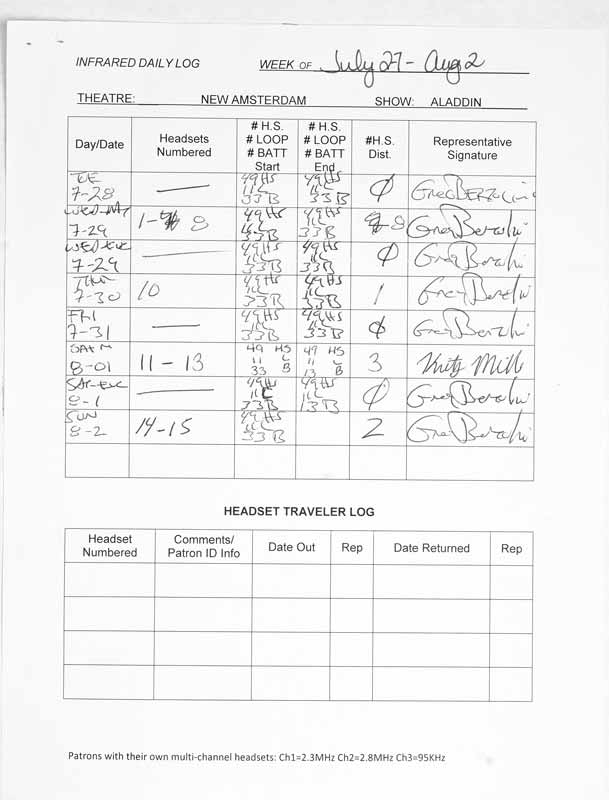 INFRARED DAILY LOG WEEK OF July 27 - Aug 2
THEATRE: NEW AMSTERDAM SHOW: ALADDIN
Day/Date Headsets Numbered # H.S. # LOOP # BATT Start # H.S. # LOOP # BATT End #H.S. Dist. Representative Signature
TUE 7-28 — 49 HS 11L 33 B 49 HS 11L 33 B 0 Greg
7-29 1- 8 49 HS 11L 33 B 49 HS 11L 33 B 8 Greg
WED EVE 7-29 — 49 HS 11L 33 B 49 HS 11L 33 B 0 Greg
7-30 10 49 HS 11L 33 B 49 HS 11L 33 B 1 Greg
FRI 7-31 — 49 HS 11L 33 B 49 HS 11L 33 B 0 Greg
SAT M 8-01 11 - 13 49 HS 11 L 33 B 49 HS 11 L 13 B 3
SAT-EVE 8-1 — 49 HS 11L 33 B 49 HS 11L 13 B 0 Greg
SUN 8-2 14-15 49 HS 11L 33 B 2 Greg
HEADSET TRAVELER LOG
Headset Numbered Comments/ Patron ID Info Date Out Rep Date Returned Rep
Patrons with their own multi-channel headsets: Ch1=2.3MHz Ch2=2.8MHz Ch3=95KHz